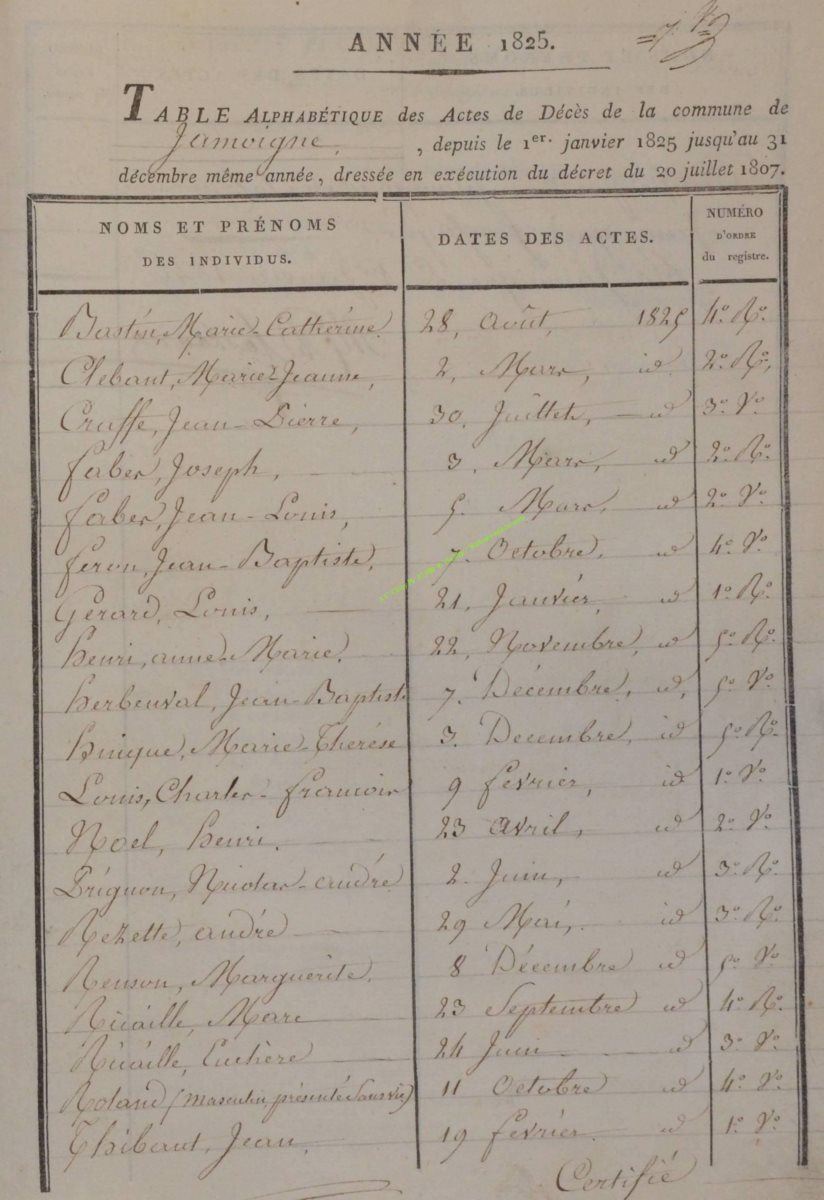 ANNÉE 1825.
TABLE ALPHABÉTIQUE des Actes de Décès de la commune de
Jamoigne, , depuis le 1er. janvier 1825 jusqu'au 31
décembre même année, dressée en exécution du décret du 20 juillet 1807.
NOMS ET PRÉNOMS DES INDIVIDUS. DATES DES ACTES. NUMÉRO D'ORDRE du registre.
Bastin, Marie-Catherine. 28, Août, 1825 4o. Ro.
Clebant, Marie-Jeanne, 2, Mars, id. 2o. Ro.
Craffe, Jean-Pierre, 30, Juillet, id 3o. Vo.
Faber, Joseph, 3, Mars, id 2o. Ro.
Faber, Jean-Louis, 5. Mars, id 2o. Vo.
Feron, Jean-Baptiste, 7. Octobre, id 4o. Vo.
Gérard, Louis, 21, Janvier, id 1o. Ro.
Henri, anne-Marie. 22, Novembre, id 5o. Ro.
Herbeuval, Jean-Baptiste 7. Décembre, id, 5o. Vo.
Hinique, Marie-Thérèse 3. Décembre, id 5o. Ro.
Louis, Charles-françois 9 février, id 1o. Vo.
Noel, henri. 23 avril, id 2o. Vo.
Prignon, Nicolas-andré 2. Juin, id 3o. Ro.
Rezette, andré 29 Mai, id 3o. Ro.
Renson, Marguerite. 8 Décembre id 5o. Vo.
Ricaille, Marc 23 Septembre id 4o. Ro.
Ricaille, Euchère 24 Juin id 3o. Vo.
Roland (masculin, présenté Sans vie) 11 Octobre id 4o. Vo.
Thibaut, Jean, 19 février. id 1o. Vo.
Certifié